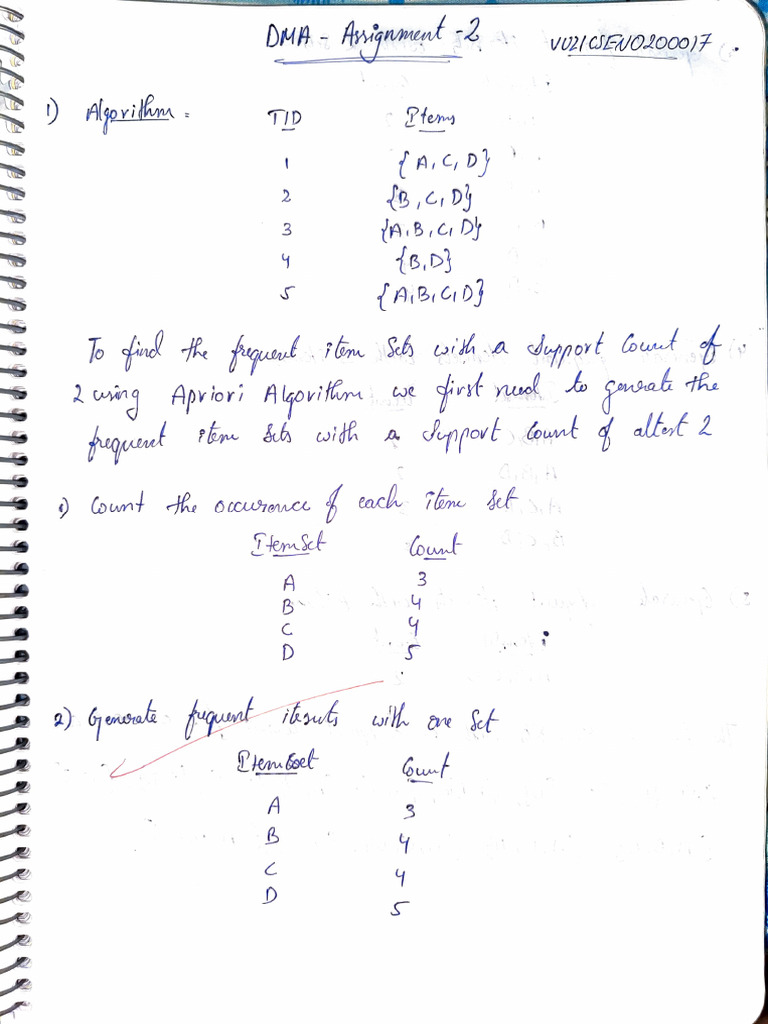 DMA - Assignment - 2
VU21CSEN0200017.
1) Algorithm: TID Items
1 {A, C, D}
2 {B, C, D}
3 {A, B, C, D}
4 {B, D}
5 {A, B, C, D}
To find the frequent item sets with a support count of
2 using Apriori Algorithm we first need to generate the
frequent item sets with a support count of altest 2
1) Count the occurence of each item set
ItemSet Count
A 3
B 4
C 4
D 5
2) Generate frequent itesets with one set
ItemSet Count
A 3
B 4
C 4
D 5